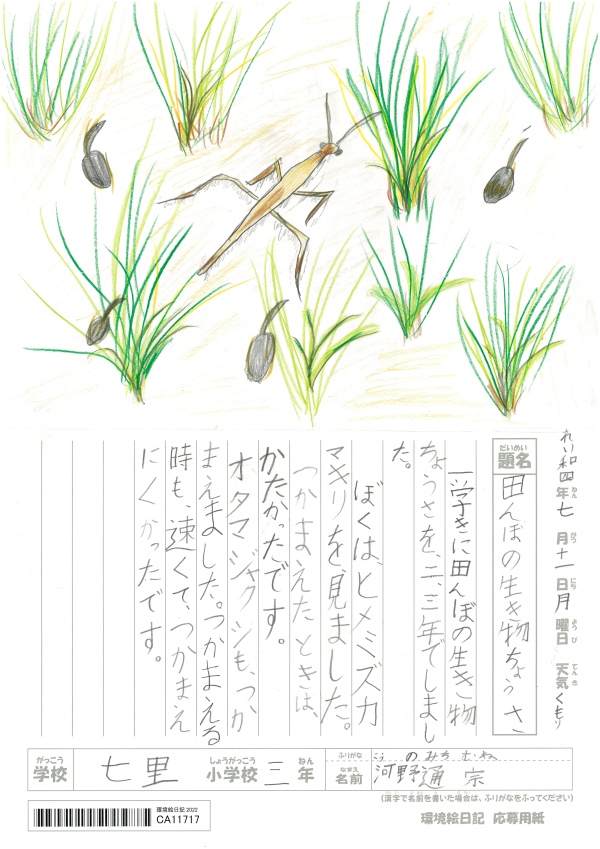 れい和四年七月十一日月曜日 天気くもり
ねん がつ にち ようび てんき
だいめい
題名 田んぼの生き物ちょうさ
一学きに田んぼの生き物
ちょうさを、二、三年でしまし
た。
ぼくは、ヒメミズカ
マキリを、見ました。
つかまえたときは、
かたかったです。
オタマジャクシも、つか
まえました。つかまえる
時も、速くて、つかまえ
にくかったです。
がっこう しょうがっこう ねん
学校 七里 小学校 三年
ふりがな こうの みちむね
なまえ
名前 河野通宗
(漢字で名前を書いた場合は、ふりがなをふってください)
環境絵日記 2022
CA11717
環境絵日記 応募用紙